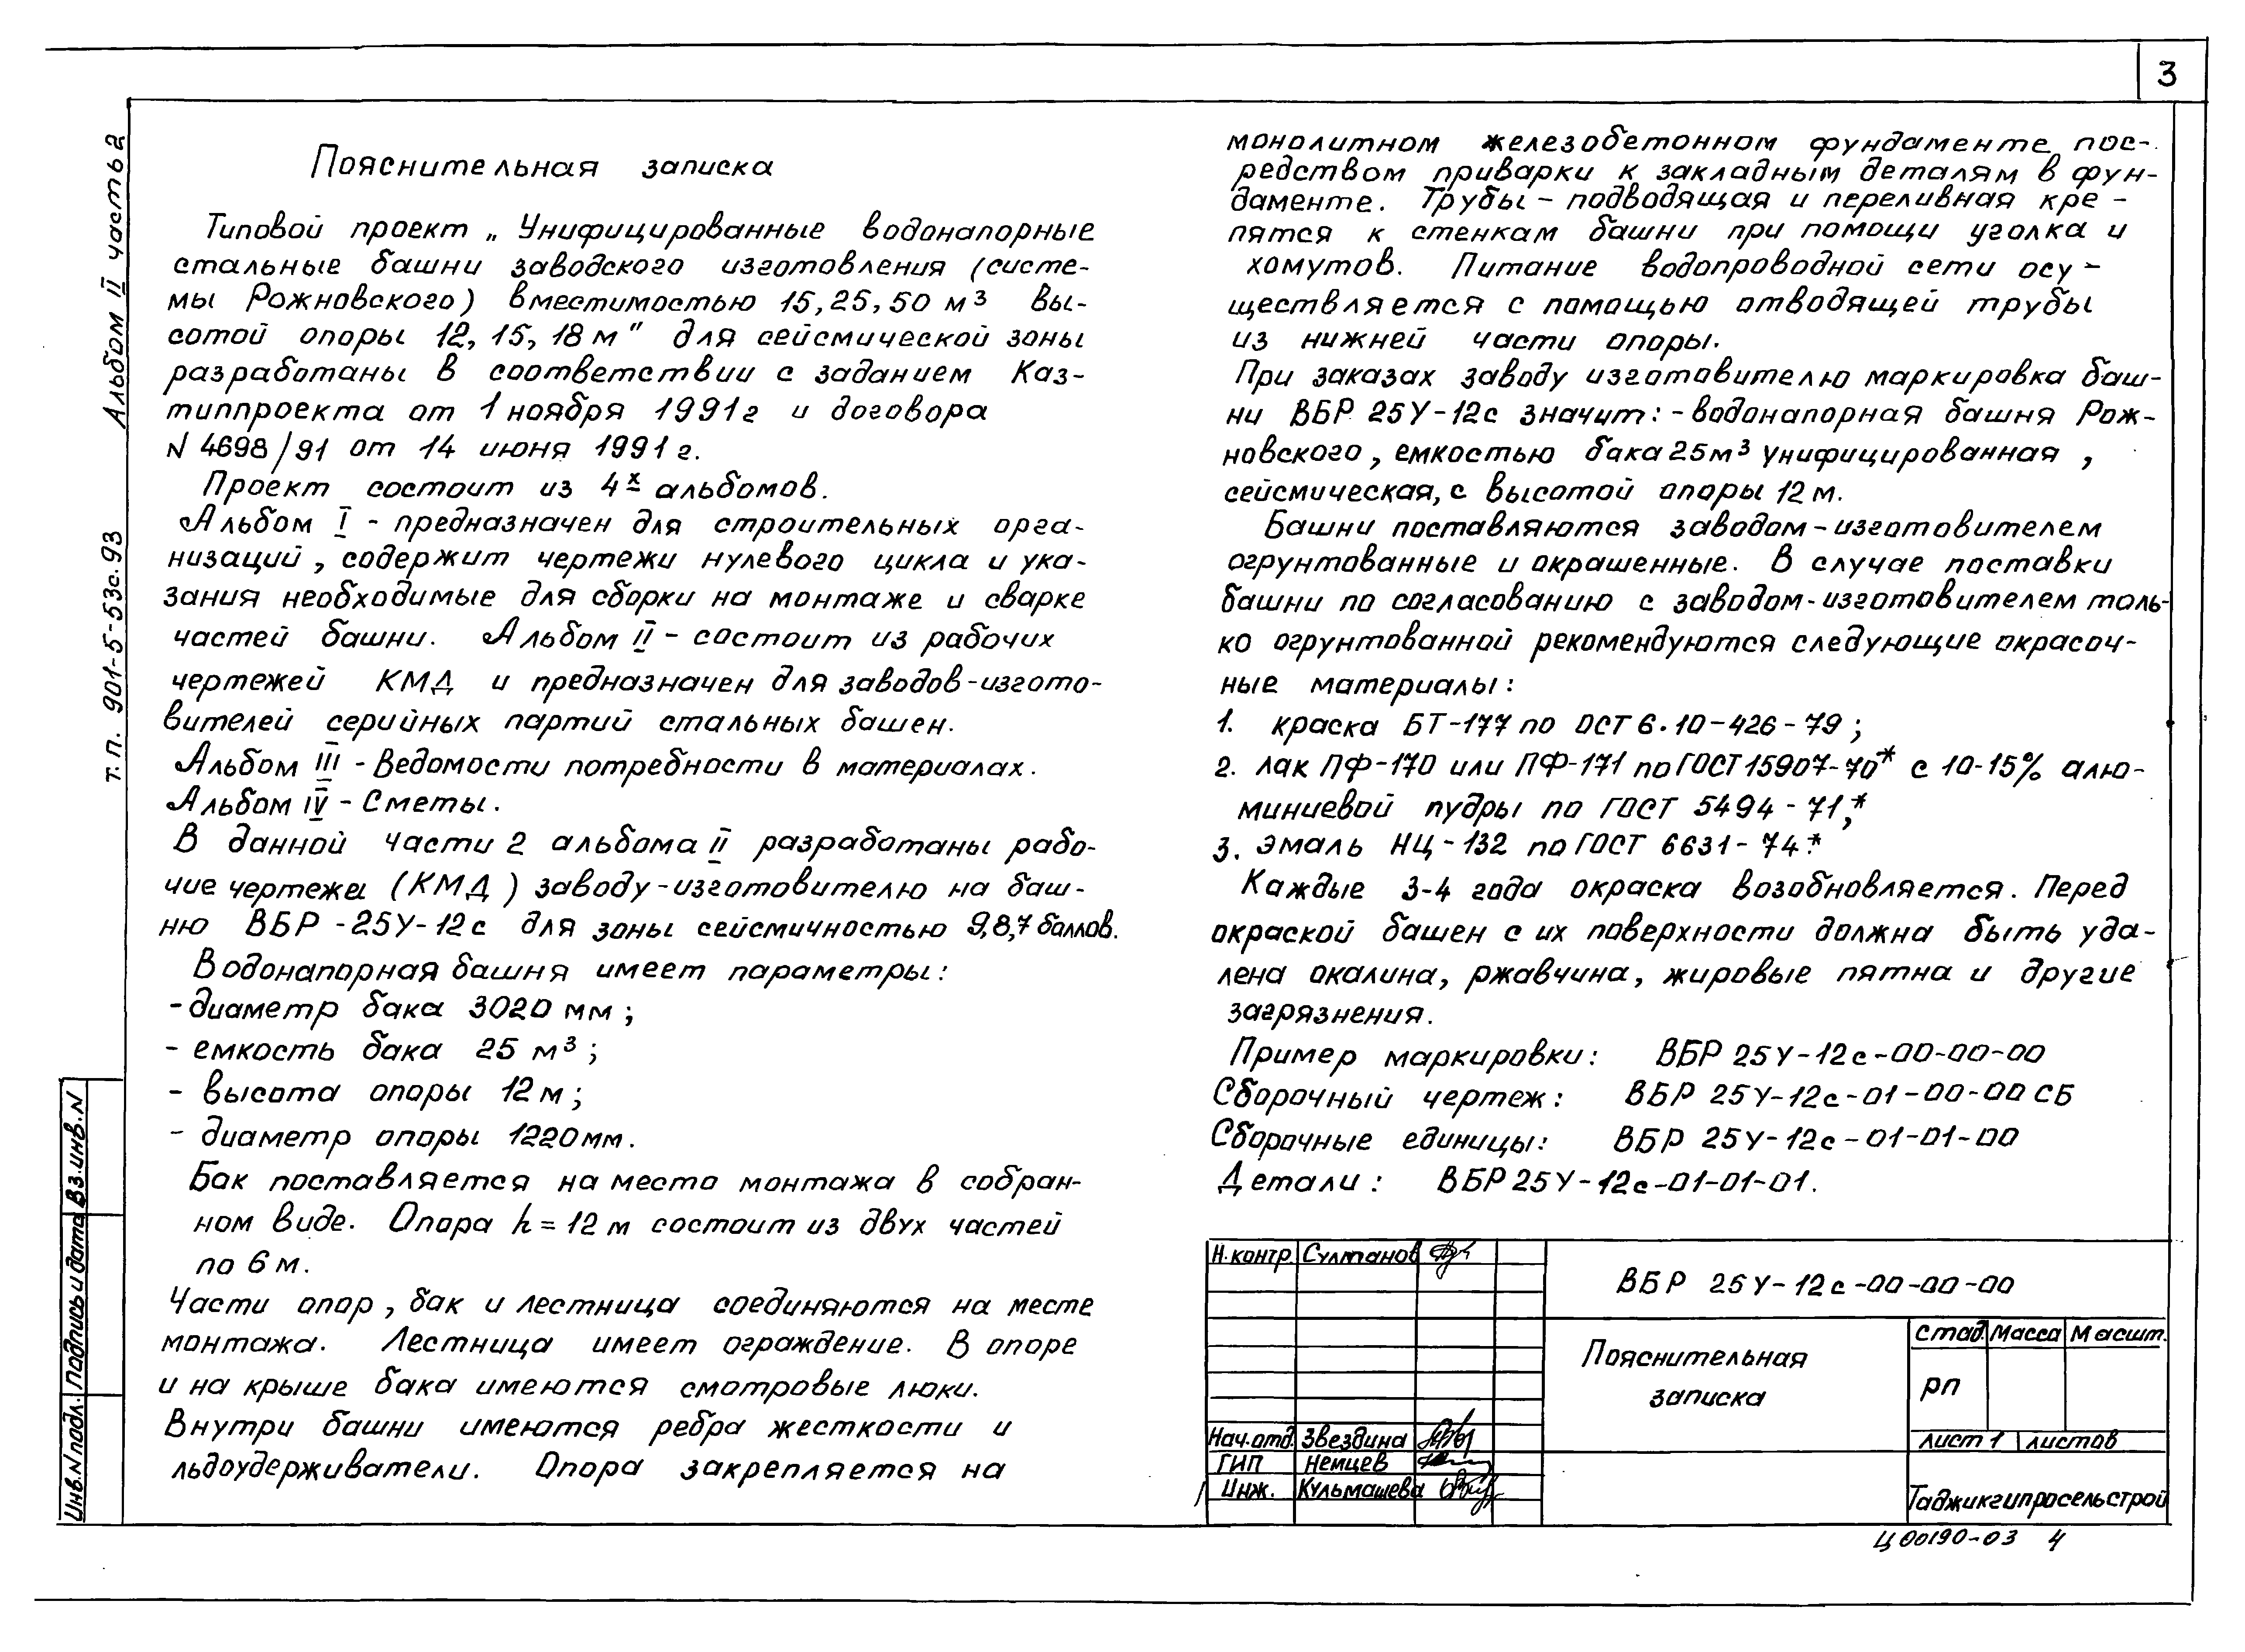 3
Альбом II часть 2
т.п. 901-5-53с.93
Пояснительная записка
Типовой проект „Унифицированные водонапорные
стальные башни заводского изготовления (систе-
мы Рожновского) вместимостью 15, 25, 50 м³ вы-
сотой опоры 12, 15, 18 м" для сейсмической зоны
разработаны в соответствии с заданием Каз-
типпроекта от 1 ноября 1991г и договора
N 4698/91 от 14 июня 1991 г.
Проект состоит из 4х альбомов.
Альбом I - предназначен для строительных орга-
низаций, содержит чертежи нулевого цикла и ука-
зания необходимые для сборки на монтаже и сварке
частей башни. Альбом II - состоит из рабочих
чертежей КМД и предназначен для заводов-изгото-
вителей серийных партий стальных башен.
Альбом III - Ведомости потребности в материалах.
Альбом IV - Сметы.
В данной части 2 альбома II разработаны рабо-
чие чертежи (КМД) заводу-изготовителю на баш-
ню ВБР-25У-12с для зоны сейсмичностью 9,8,7 баллов.
Водонапорная башня имеет параметры:
- диаметр бака 3020 мм;
- емкость бака 25 м³;
- высота опоры 12 м;
- диаметр опоры 1220 мм.
Бак поставляется на место монтажа в собран-
ном виде. Опора h = 12 м состоит из двух частей
по 6 м.
Части опор, бак и лестница соединяются на месте
монтажа. Лестница имеет ограждение. В опоре
и на крыше бака имеются смотровые люки.
Внутри башни имеются ребра жесткости и
льдоудерживатели. Опора закрепляется на
монолитном железобетонном фундаменте пос-
редством приварки к закладным деталям в фун-
даменте. Трубы - подводящая и переливная кре-
пятся к стенкам башни при помощи уголка и
хомутов. Питание водопроводной сети осу-
ществляется с помощью отводящей трубы
из нижней части опоры.
При заказах заводу изготовителю маркировка баш-
ни ВБР 25У-12с значит: - водонапорная башня Рож-
новского, емкостью бака 25м³ унифицированная,
сейсмическая, с высотой опоры 12 м.
Башни поставляются заводом-изготовителем
огрунтованные и окрашенные. В случае поставки
башни по согласованию с заводом-изготовителем толь-
ко огрунтованной рекомендуются следующие окрасоч-
ные материалы:
1. краска БТ-177 по ОСТ 6.10-426-79;
2. лак ПФ-170 или ПФ-171 по ГОСТ 15907-70* с 10-15% алю-
миниевой пудры по ГОСТ 5494-71*,
3. эмаль НЦ-132 по ГОСТ 6631-74*.
Каждые 3-4 года окраска возобновляется. Перед
окраской башен с их поверхности должна быть уда-
лена окалина, ржавчина, жировые пятна и другие
загрязнения.
Пример маркировки: ВБР 25У-12с-00-00-00
Сборочный чертеж: ВБР 25У-12с-01-00-00 СБ
Сборочные единицы: ВБР 25У-12с-01-01-00
Детали: ВБР 25У-12с-01-01-01.
Инв.N подл. Подпись и дата Вз.инв.N
Н.контр. Султанов
ВБР 25У-12с-00-00-00
Пояснительная
записка
Стад. Масса Масшт.
рп
лист 1 листов
Нач.отд. Звездина
ГИП Немцев
Инж. Кульмашева
Таджикгипросельстрой
Ц 00190-03 4